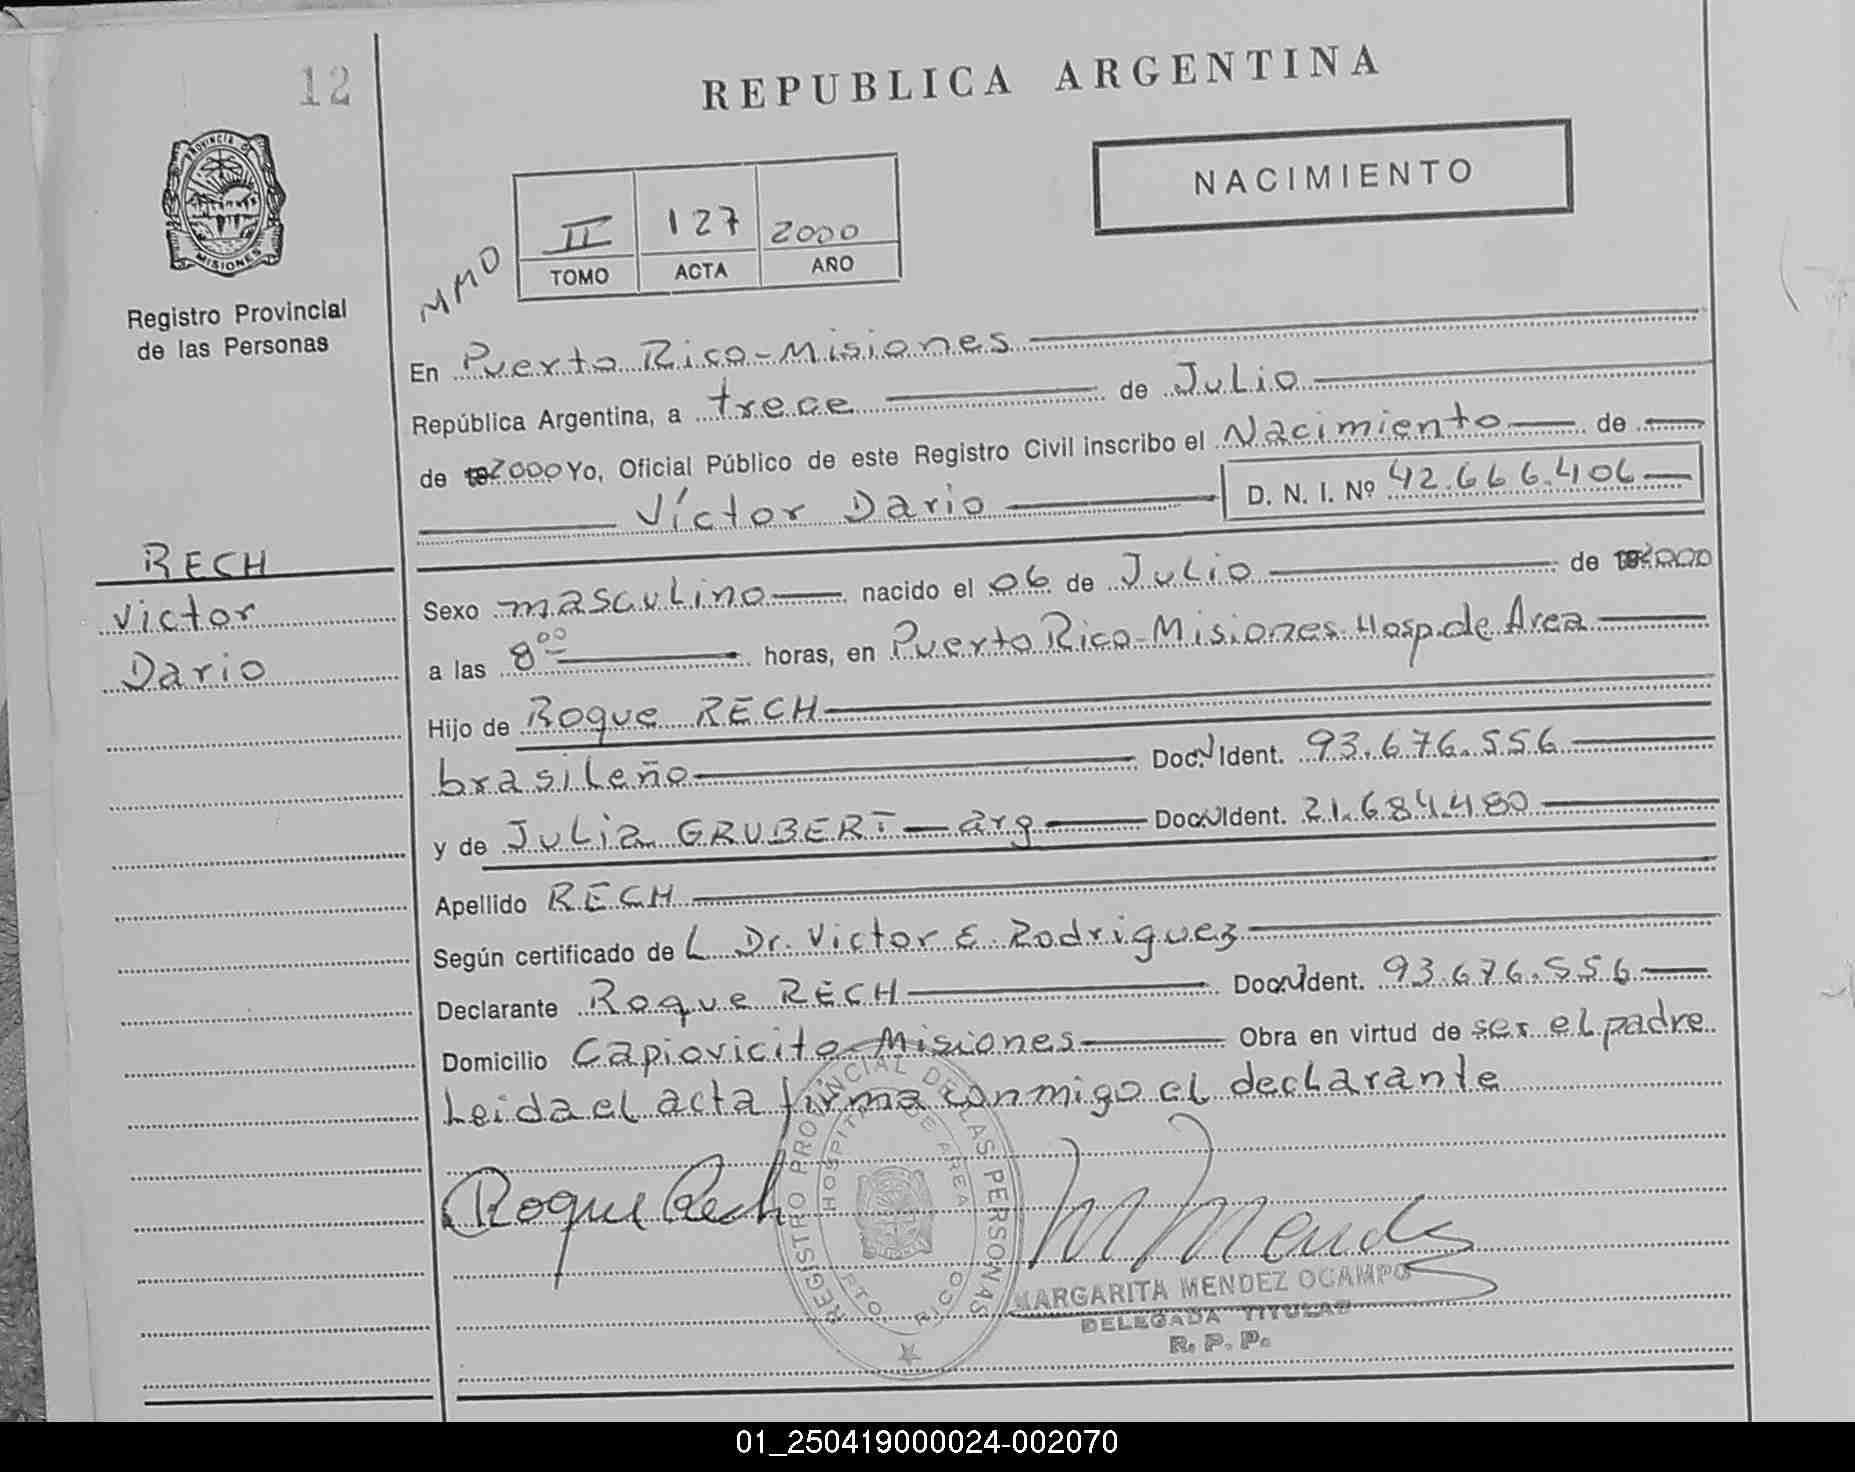 12
REPUBLICA ARGENTINA
NACIMIENTO
PROVINCIA D
MISIONES
Registro Provincial
de las Personas
MMO
II 127 2000
TOMO ACTA AÑO
En Puerto Rico-Misiones
República Argentina, a trece de Julio
de 2000 Yo, Oficial Público de este Registro Civil inscribo el Nacimiento de
Víctor Dario D. N. I. Nº 42.666.406
RECH
Victor
Dario
Sexo masculino nacido el 06 de Julio de 2000
a las 8⁰⁰ horas, en Puerto Rico-Misiones Hosp.de Area
Hijo de Roque RECH
brasileño Doc. Ident. 93.676.556
y de Julia GRUBERT-arg Doc. Ident. 21.684.480
Apellido RECH
Según certificado de L Dr. Victor E. Rodriguez
Declarante Roque RECH Doc. Ident. 93.676.556
Domicilio Capiovicito-Misiones Obra en virtud de ser el padre
Leida el acta firma conmigo el declarante
Roque Rech
M Mendez
REGISTRO PROVINCIAL DE LAS PERSONAS
HOSPITAL DE AREA
PTO RICO
MARGARITA MENDEZ OCAMPO
DELEGADA TITULAR
R. P. P.
01_250419000024-002070